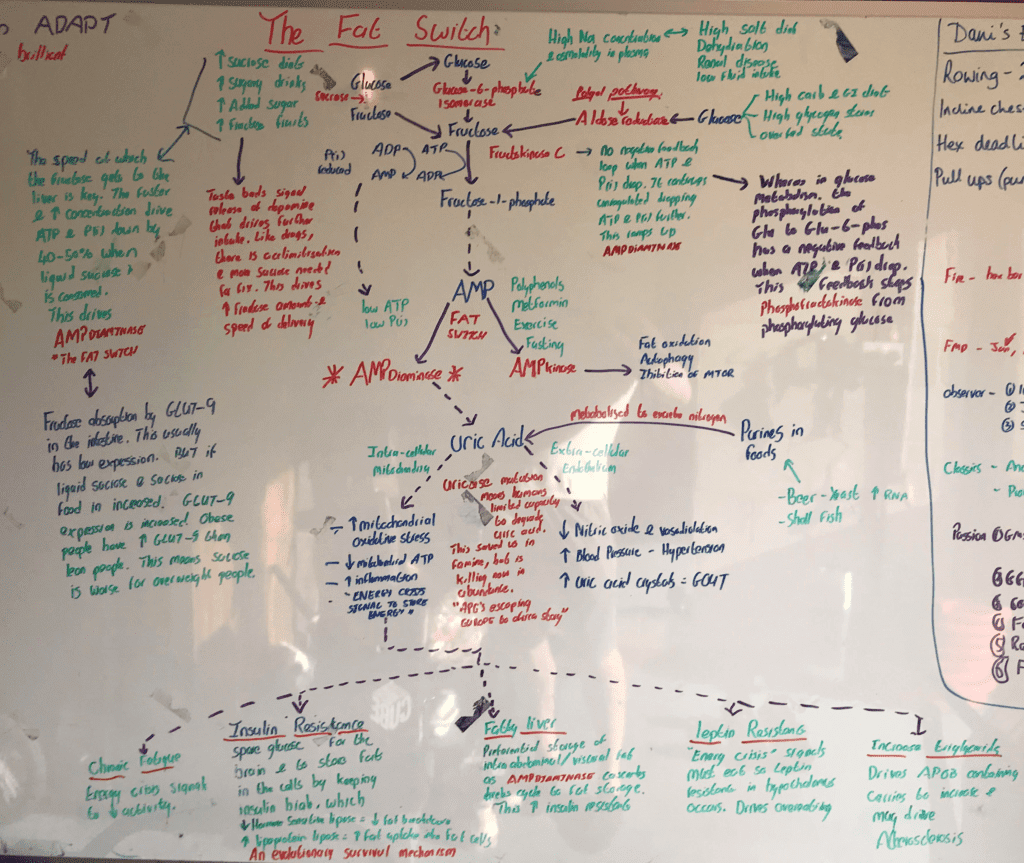 ADAPT
brilliant
The Fat Switch
↑ Sucrose diet
↑ Sugary drinks
↑ Added sugar
↑ Fructose fruits
Glucose
Sucrose →
Fructose
Glucose
Glucose-6-phosphate
Isomerase
Fructose
High Na concentration
& osmolality in plasma
High Salt diet
Dehydration
Renal disease
low fluid intake
Polyol pathway
Aldose reductase
Glucose
High carb &
High glycogen stores
overfed state
P(i)
reduced
ADP
ATP
AMP
ADP
Fructokinase C
Fructose-1-phosphate
No negative feedback
loop when ATP &
P(i) drop. It continues
unregulated dropping
ATP & P(i) further.
This ramps up
AMPDIAMINASE
Whereas in glucose
metabolism, the
phosphorylation of
Glu to Glu-6-phos
has a negative feedback
when ATP & P(i) drop.
This feedback stops
Phosphofructokinase from
phosphorylating glucose
The speed at which
the fructose gets to the
liver is key. The faster
& ↑ concentration drive
ATP & P(i) down by
40-50% when
liquid sucrose
is consumed.
This drives
AMPDIAMINASE
"The FAT SWITCH
Taste buds signal
release of dopamine
that drives further
intake. Like drugs,
there is acclimitisation
& more sucrose needed
for fix. This drives
↑ fructose amount &
speed of delivery
low ATP
low P(i)
AMP
FAT
SWITCH
Polyphenols
Metformin
Exercise
Fasting
* AMPDiaminase *
AMPkinase
Fat oxidation
Autophagy
Inhibition of MTOR
Fructose absorption by GLUT-9
in the intestine. This usually
has low expession. But if
liquid sucrose & sucrose in
food in increased. GLUT-9
expression is increased. Obese
people have ↑ GLUT-9 than
lean people. This means sucrose
is worse for overweight people.
Intra-cellular
Mitochondria
Uric Acid
Extra-cellular
Endothelium
Metabolised to excrete nitrogen
Purines in
foods
- Beer - Yeast ↑ RNA
- Shell Fish
Uricase mutation
means humans
limited capacity
to degrade
uric acid.
This saved us in
famine, but is
killing now in
abundance.
"APE'S escaping
EUROPE to africa story"
- ↑ mitochondrial
oxidative stress
- ↓ mitochondrial ATP
- ↑ inflammation
- "ENERGY CRISIS
SIGNAL TO STORE
ENERGY"
↓ Nitric oxide & vasodilation
↑ Blood Pressure - Hypertension
↑ Uric acid crystals = GOUT
Chronic Fatigue
Energy crisis signals
to ↓ activity.
Insulin Resistance
spare glucose for the
brain & to store fats
in the cells by keeping
insulin high, which
↓ Hormone Sensitive lipase = ↓ fat breakdown
↑ lipoprotein lipase = ↑ Fat uptake into fat cells
An evolutionary survival mechanism
Fatty liver
Preferential storage of
intra abdominal/visceral fat
as AMPDIAMINASE
krebs cycle to fat storage.
This ↑ insulin resistance
Leptin Resistance
"Energy crisis" signals
must eat so Leptin
resistance in hypothalamus
occurs. Drives overeating
Increase Triglycerids
Drives APOB containing
carriers to increase &
may drive
Atherosclerosis
Dani's
Rowing -
Incline ches
Hex deadli
Pull ups (pu
Fir -
FMP -
observer - ①
②
③
Classics -
Passion ①